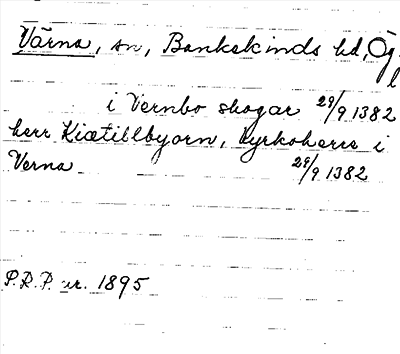 Värna, sn, Bankekinds hd, Ög.
l
i Vernbo skogar 29/9 1382
herr Kiætillbyorn, kyrkoherre i
Verna 29/9 1382
P.R.P. nr. 1895